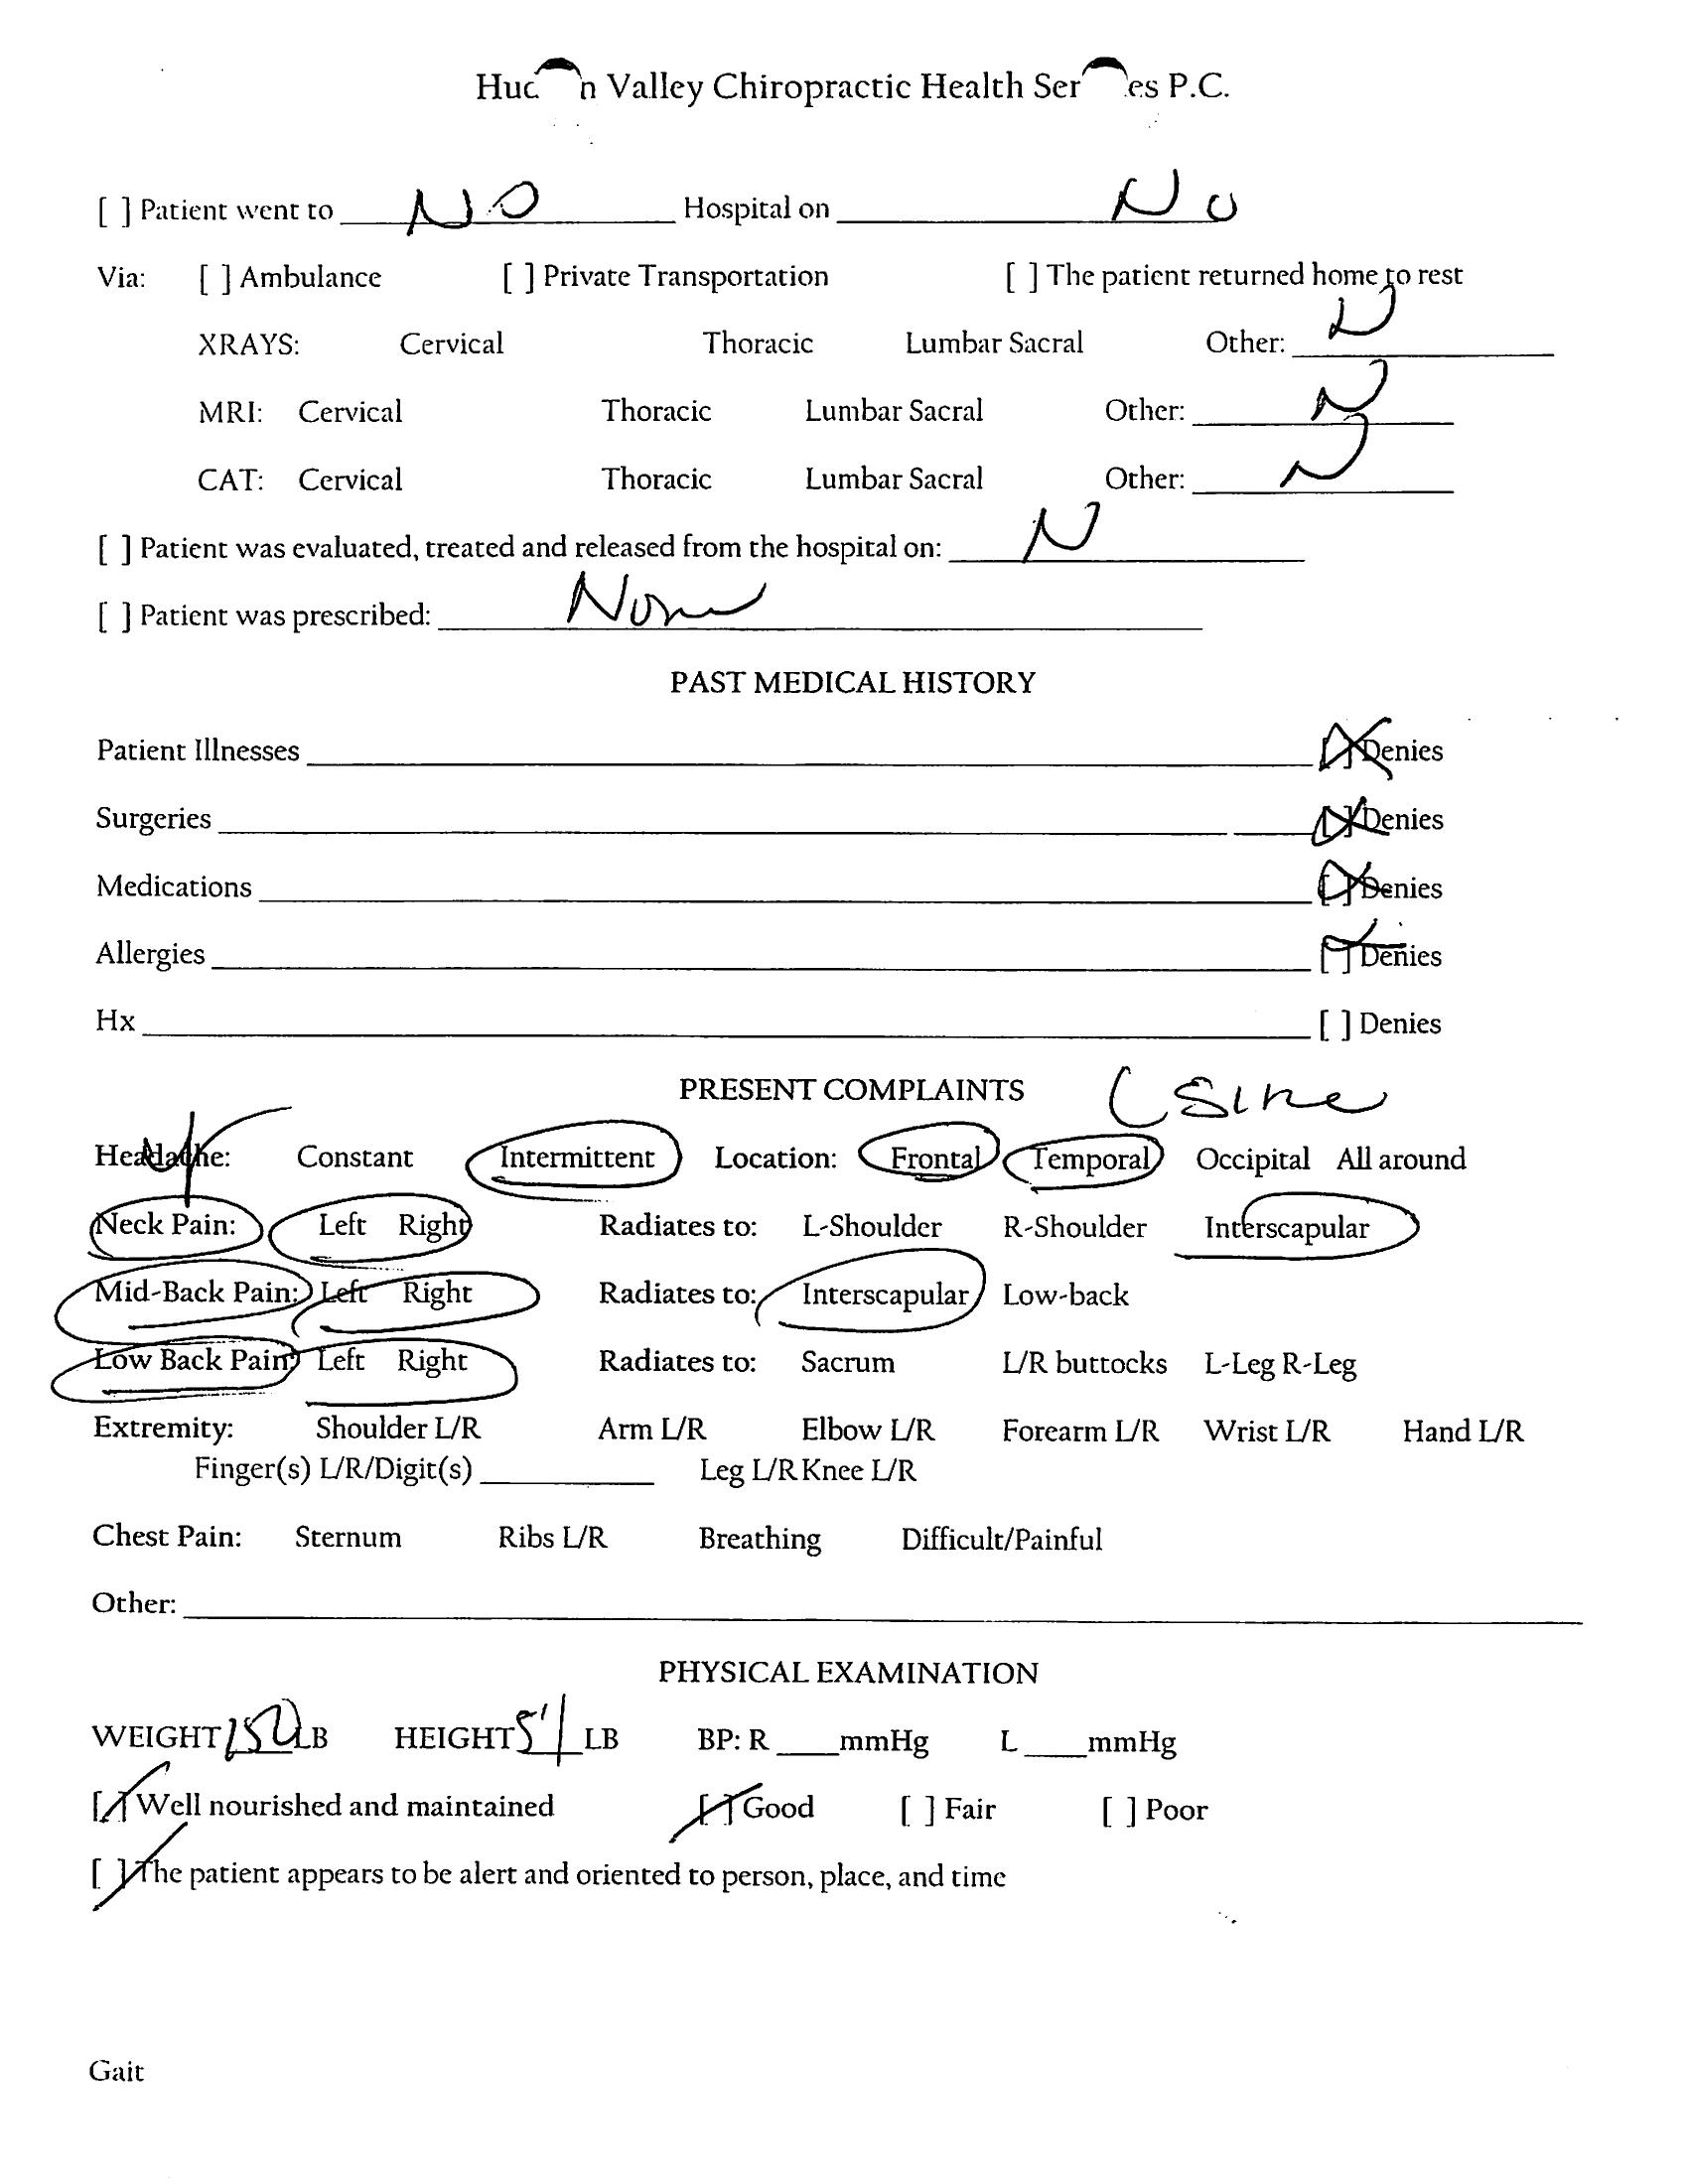 Huc n Valley Chiropractic Health Ser es P.C.
[ ] Patient went to NO Hospital on No
Via: [ ] Ambulance [ ] Private Transportation [ ] The patient returned home to rest
XRAYS: Cervical Thoracic Lumbar Sacral Other: N
MRI: Cervical Thoracic Lumbar Sacral Other: N
CAT: Cervical Thoracic Lumbar Sacral Other: N
[ ] Patient was evaluated, treated and released from the hospital on: N
[ ] Patient was prescribed: None
PAST MEDICAL HISTORY
Patient Illnesses [X] Denies
Surgeries [X] Denies
Medications [X] Denies
Allergies [X] Denies
Hx [ ] Denies
PRESENT COMPLAINTS
Headache: Constant Intermittent Location: Frontal Temporal Occipital All around
Neck Pain: Left Right Radiates to: L-Shoulder R-Shoulder Interscapular
Mid-Back Pain: Left Right Radiates to: Interscapular Low-back
Low Back Pain: Left Right Radiates to: Sacrum L/R buttocks L-Leg R-Leg
Extremity: Shoulder L/R Arm L/R Elbow L/R Forearm L/R Wrist L/R Hand L/R
Finger(s) L/R/Digit(s) Leg L/R Knee L/R
Chest Pain: Sternum Ribs L/R Breathing Difficult/Painful
Other:
PHYSICAL EXAMINATION
WEIGHT 150 LB HEIGHT 5'1 LB BP: R mmHg L mmHg
[/] Well nourished and maintained [/] Good [ ] Fair [ ] Poor
[/] The patient appears to be alert and oriented to person, place, and time
Gait